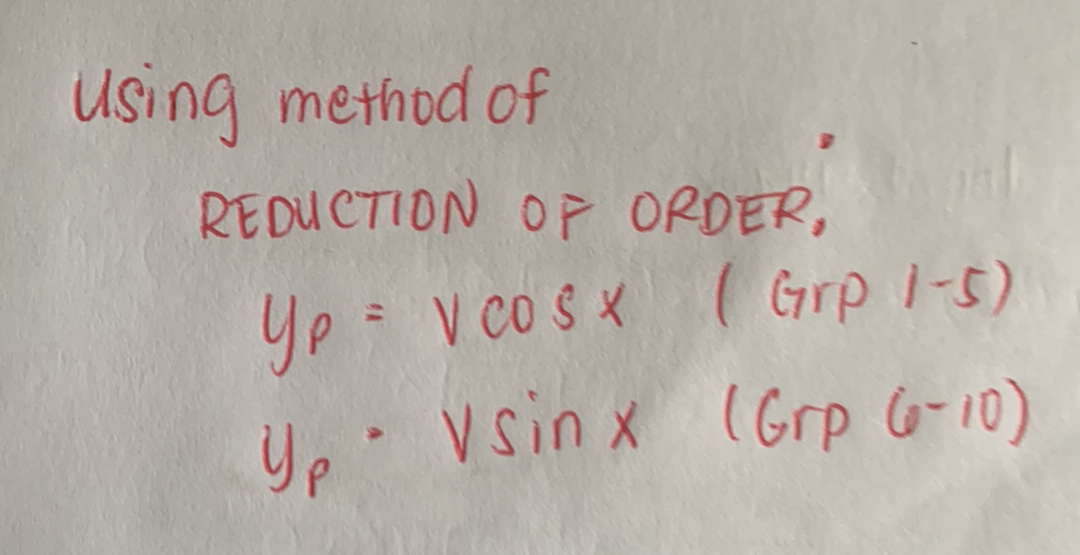 Using method of
REDUCTION OF ORDER,
yp = v cos x ( Grp 1-5)
yp = v sin x (Grp 6-10)